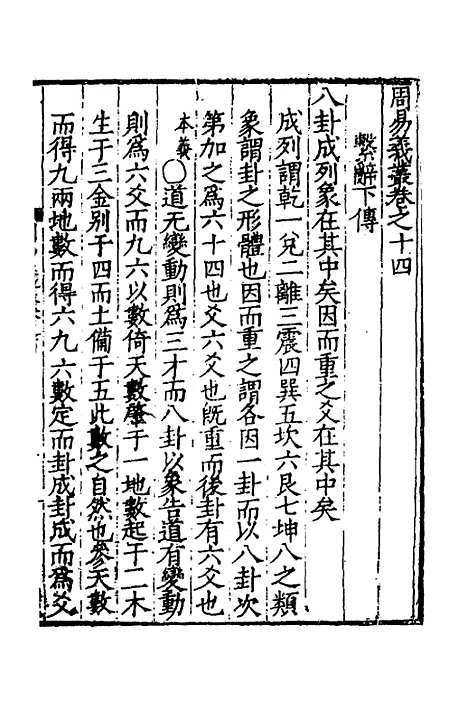 周易義叢卷之十四
繫辭下傳
八卦成列象在其中矣因而重之爻在其中矣
成列謂乾一兌二離三震四巽五坎六艮七坤八之類
象謂卦之形體也因而重之謂各因一卦而以八卦次
第加之為六十四也爻六爻也旣重而後卦有六爻也
本義○道无變動則為三才而八卦以象告道有變動
則為六爻而九六以數倚天數肇于一地數起于二木
生于三金別于四而土備于五此數之自然也參天數
而得九兩地數而得六九六數定而卦成卦成而爲爻